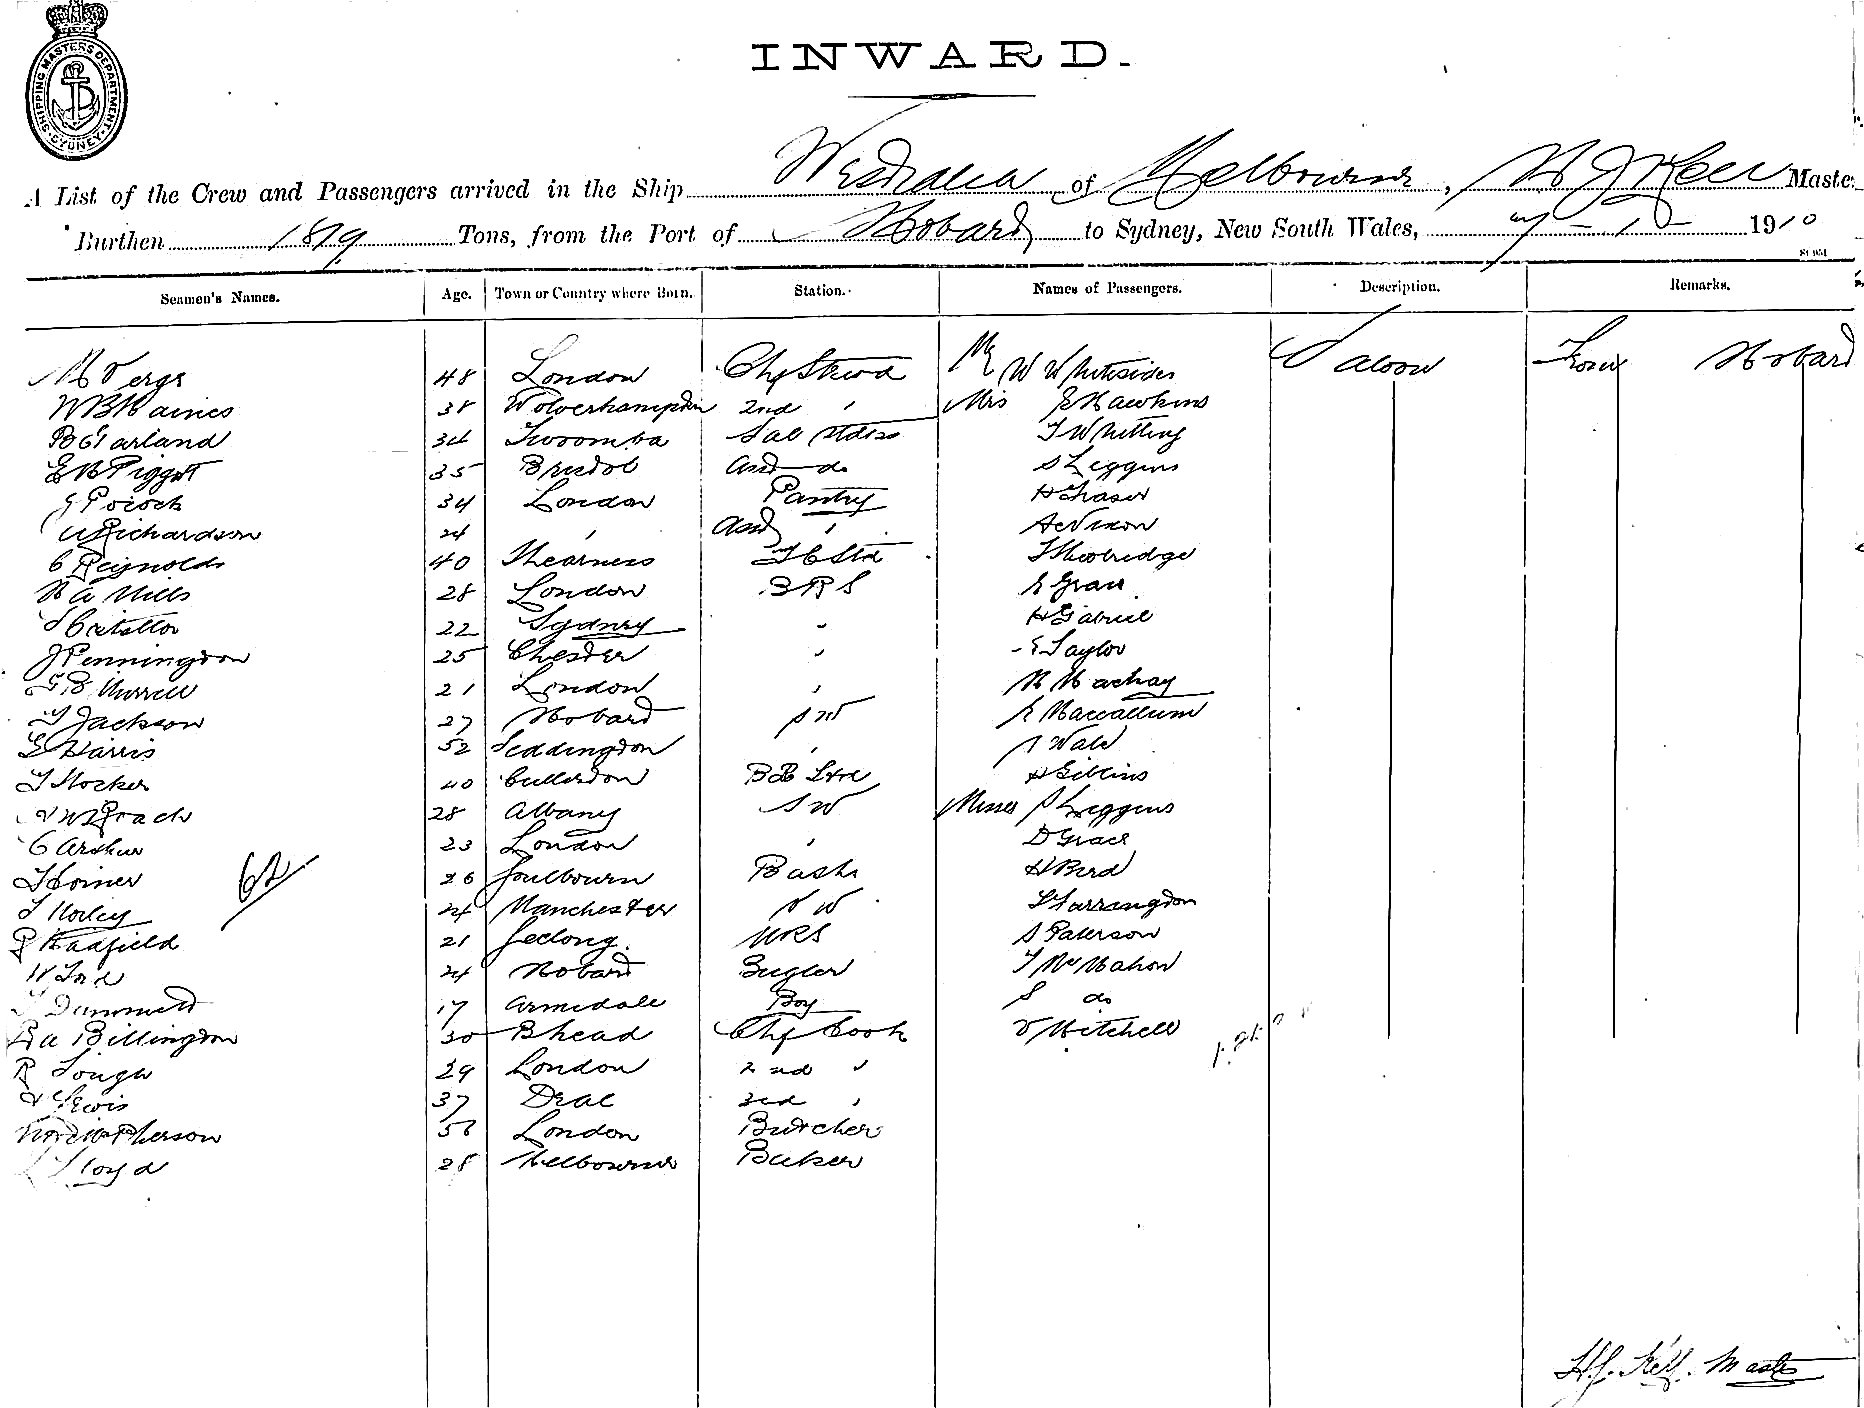 SHIPPING MASTERS DEPARTMENT. SYDNEY
INWARD.
A List of the Crew and Passengers arrived in the Ship Westralia of Melbourne, H J Kell Master
Burthen 1819 Tons, from the Port of Hobart to Sydney, New South Wales, 1910
Seamen's Names. Age. Town or Country where Born. Station. Names of Passengers. Description. Remarks.
48 London Chf Stewd Mr W Whitesides Saloon From Hobart
W B Haines 38 Wolverhampton 2nd " Mrs E Hawkins
34 Twoomba Sal T Whitting
E H Piggott 35 Bristol Asst do S Leggins
J Pocock 34 London Pantry H Fraser
Richardson 24 " Asst " A Nixon
C Reynolds 40 Shearness
H A Mills 28 London E Grace
22 Sydney " H Gabriel
J Pennington 25 Chester " E Taylor
G B Murrell 21 London " H Mackay
T Jackson 27 Hobart S W E Maccallum
E Harris 52 Teddington " Wald
T Stocker 40 H Giblins
Roach 28 Albany S W Misses S Leggins
C Arthur 23 London " D Grace
26 Goulbourn H Bird
T Morley 24 Manchester S W Farrington
Hadfield 21 Geelong. S Paterson
H Ford 24 Hobart Bugler T McMahon
17 Armidale Boy S do
R A Billington 30 Bhead Chf Cook V Mitchell
R Tough 29 London 2nd "
Lewis 37 Deal 3rd "
McPherson London Butcher
Lloyd 28 Melbourne Baker
62
H.J. Kell. Master